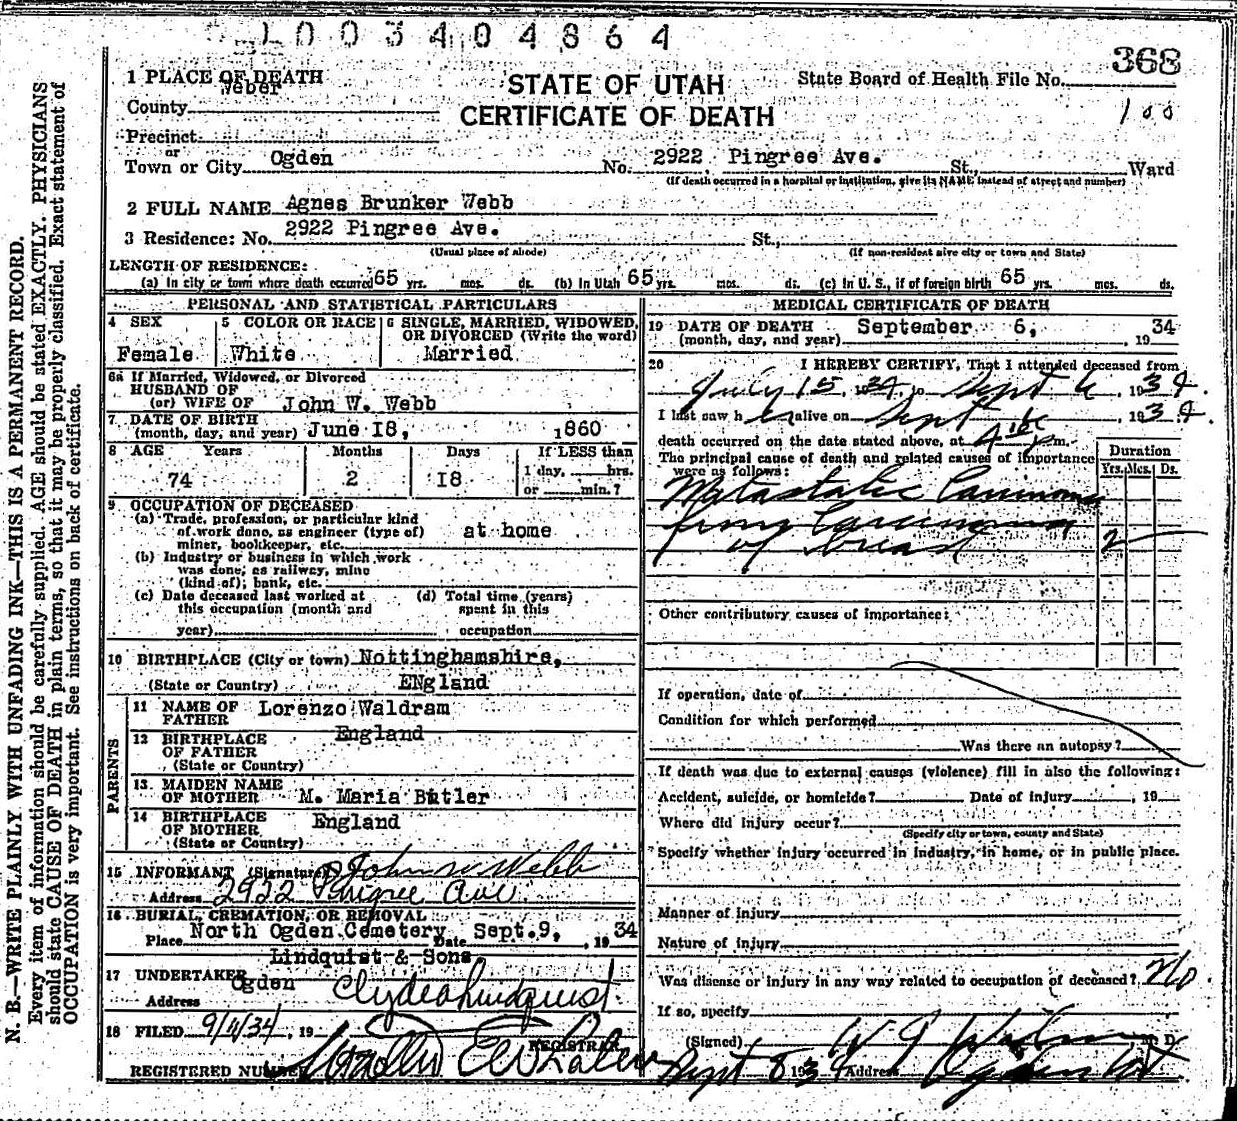 1003404864
368
1 PLACE OF DEATH STATE OF UTAH State Board of Health File No.
County Weber CERTIFICATE OF DEATH 100
Precinct
or
Town or City Ogden No. 2922 Pingree Ave. St., Ward
(If death occurred in a hospital or institution, give its NAME instead of street and number)
2 FULL NAME Agnes Brunker Webb
3 Residence: No. 2922 Pingree Ave. St.,
(Usual place of abode) (If non-resident give city or town and State)
LENGTH OF RESIDENCE:
(a) In city or town where death occurred 65 yrs. mos. ds. (b) In Utah 65 yrs. mos. ds. (c) In U. S., if of foreign birth 65 yrs. mos. ds.
PERSONAL AND STATISTICAL PARTICULARS
4 SEX 5 COLOR OR RACE 6 SINGLE, MARRIED, WIDOWED,
OR DIVORCED (Write the word)
Female White Married
6a If Married, Widowed, or Divorced
HUSBAND OF
(or) WIFE OF John W. Webb
7 DATE OF BIRTH
(month, day, and year) June I8, 1860
8 AGE Years Months Days If LESS than
1 day, hrs.
74 2 I8 or min.?
9 OCCUPATION OF DECEASED
(a) Trade, profession, or particular kind
of work done, as engineer (type of) at home
miner, bookkeeper, etc.
(b) Industry or business in which work
was done, as railway, mine
(kind of); bank, etc.
(c) Date deceased last worked at (d) Total time (years)
this occupation (month and spent in this
year) occupation
10 BIRTHPLACE (City or town) Nottinghamshire,
(State or Country) ENgland
PARENTS
11 NAME OF Lorenzo Waldram
FATHER
12 BIRTHPLACE England
OF FATHER
(State or Country)
13 MAIDEN NAME
OF MOTHER M. Maria Butler
14 BIRTHPLACE England
OF MOTHER
(State or Country)
15 INFORMANT (Signature) John W Webb
Address 2922 Pingree Ave
16 BURIAL, CREMATION, OR REMOVAL
Place North Ogden Cemetery Date Sept.9, , 19 34
Lindquist & Sons,
17 UNDERTAKER Ogden
Address Clyde Lindquist
18 FILED 9/11/34 , 19
REGISTRAR
REGISTERED NUMBER
MEDICAL CERTIFICATE OF DEATH
19 DATE OF DEATH September 6, 34
(month, day, and year) , 19
20 I HEREBY CERTIFY, That I attended deceased from
July 15 1934, to Sept 6, 1934.
I last saw h er alive on Sept 6 1934.
death occurred on the date stated above, at 4 p m.
The principal cause of death and related causes of importance Duration
were as follows: Yrs. Mos. Ds.
Metastatic Carcinoma
from Carcinoma
of breast 2
Other contributory causes of importance:
If operation, date of
Condition for which performed
Was there an autopsy?
If death was due to external causes (violence) fill in also the following:
Accident, suicide, or homicide? Date of injury , 19
Where did injury occur?
(Specify city or town, county and State)
Specify whether injury occurred in industry, in home, or in public place.
Manner of injury
Nature of injury
Was disease or injury in any way related to occupation of deceased? No.
If so, specify
(Signed) M. D.
Sept 8 1934 Address Ogden Ut
N. B.—WRITE PLAINLY WITH UNFADING INK—THIS IS A PERMANENT RECORD.
Every item of information should be carefully supplied. AGE should be stated EXACTLY. PHYSICIANS
should state CAUSE OF DEATH in plain terms, so that it may be properly classified. Exact statement of
OCCUPATION is very important. See instructions on back of certificate.